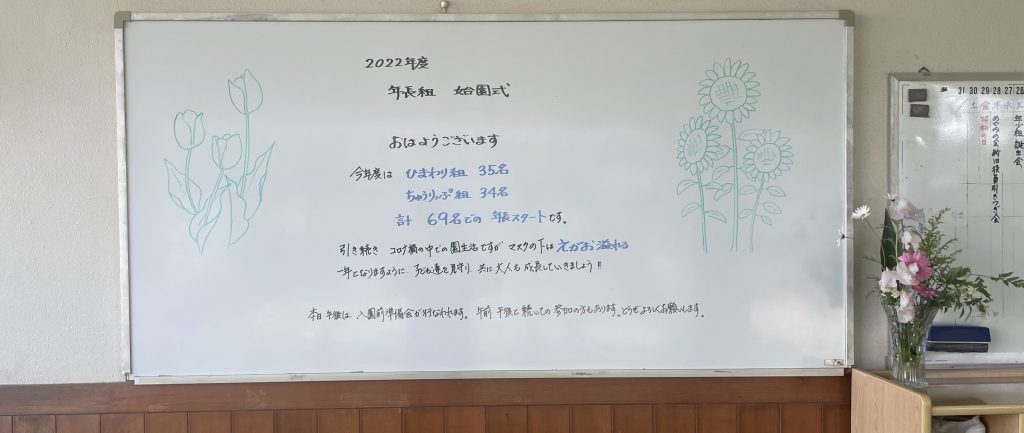 2022年度
年長組 始園式
おはようございます
今年度は ひまわり組 35名
ちゅうりっぷ組 34名
計 69名での 年長スタートです。
引き続き コロナ禍の中での園生活ですが マスクの下は えがお溢れる
一年となりますように、子ども達を見守り、共に大人も成長していきましょう!!
本日午後は 入園前準備会が行なわれます。午前 午後と続いての参加の方もあります。どうぞよろしくお願いします。
31 30 29 28 27 26
土 金 木 水
昭和の日
年少組 誕生会